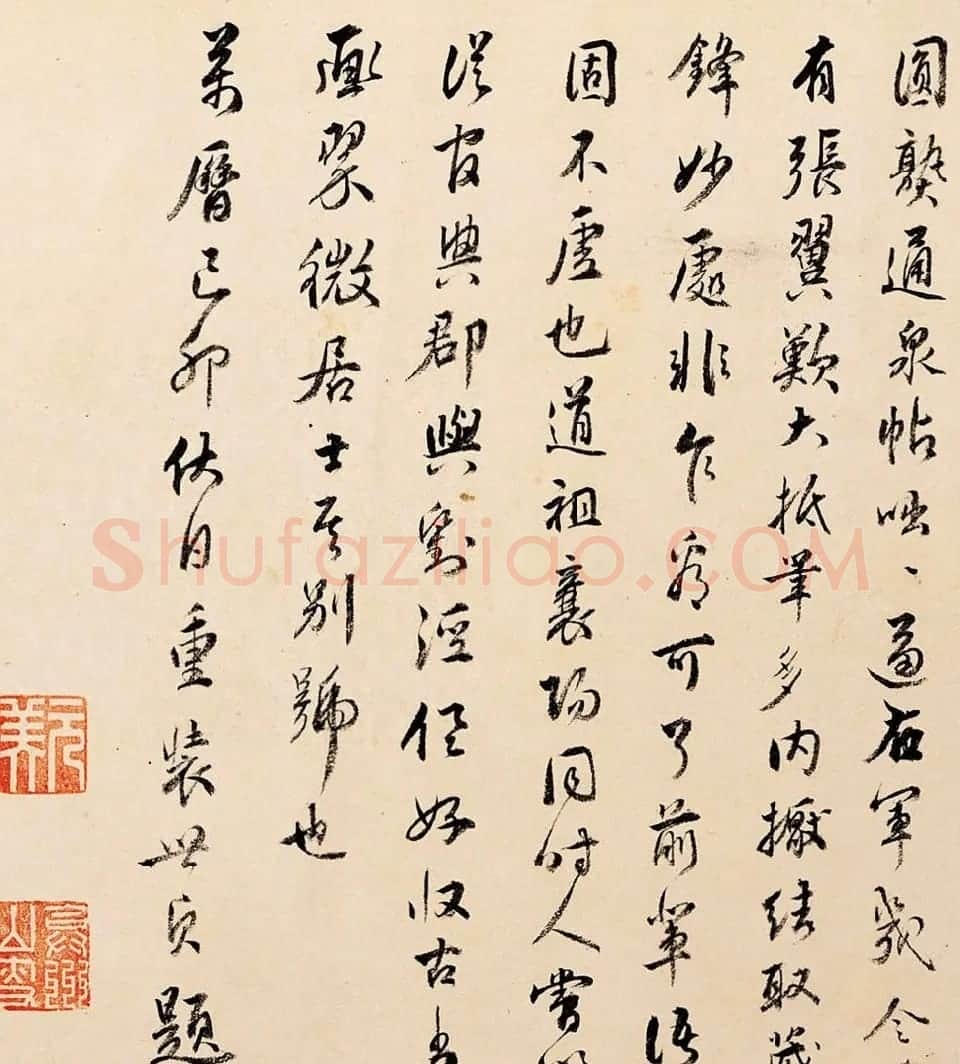 圓熟通泉帖咄、逼右軍幾令
有張翼歎大抵筆多內擫結取藏
鋒妙處非乍看可了前輩語
固不虛也道祖襄陽同時人嘗
從官與郡與劉涇俱好收古書
畫翠微居士其別號也
萬曆己卯伏日重裝世貞題
Shufaziliao.COM